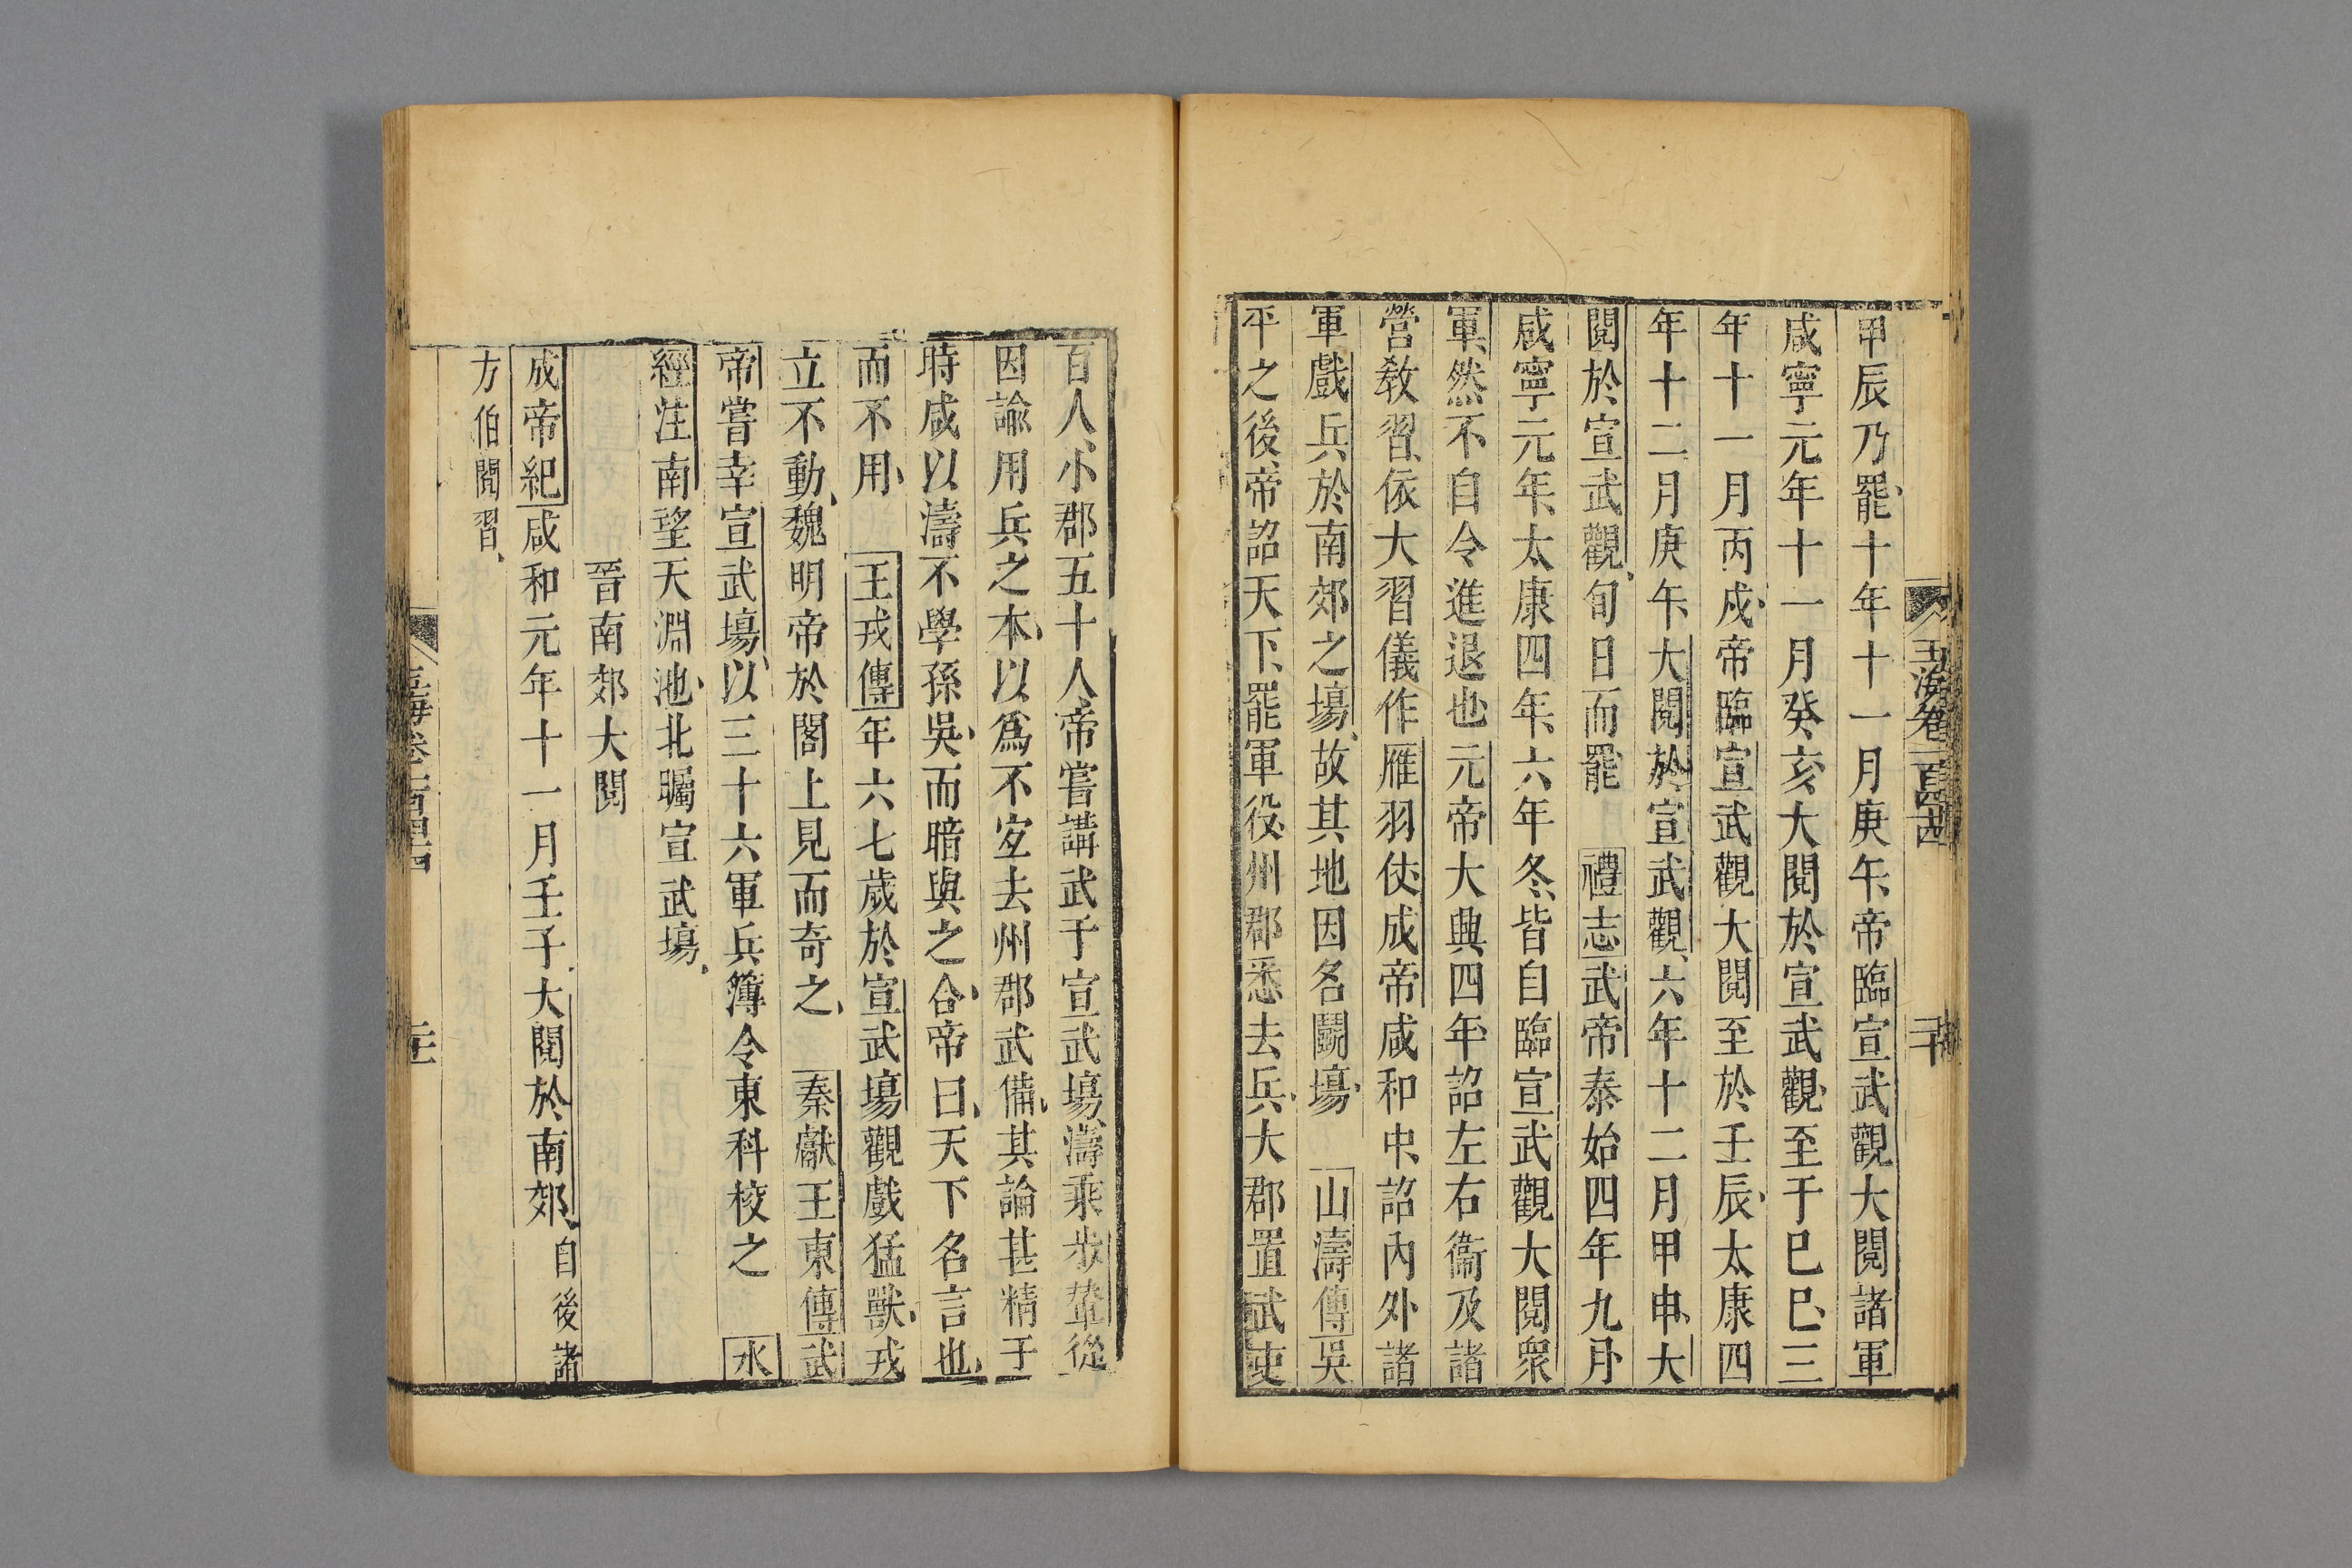 玉海卷一百四十四
二十
甲辰乃罷十年十一月庚午帝臨宣武觀大閱諸軍
咸寧元年十一月癸亥大閱於宣武觀至于己巳三
年十一月丙戌帝臨宣武觀大閱至於壬辰太康四
年十二月庚午大閱於宣武觀六年十二月甲申大
閱於宣武觀旬日而罷 禮志武帝泰始四年九月
咸寧元年太康四年六年冬皆自臨宣武觀大閱衆
軍然不自令進退也元帝大興四年詔左右衞及諸
營教習依大習儀作雁羽仗成帝咸和中詔內外諸
軍戲兵於南郊之場故其地因名鬭場 山濤傳吳
平之後帝詔天下罷軍役州郡悉去兵大郡置武吏
百人小郡五十人帝嘗講武于宣武場濤乘步輦從
因諭用兵之本以爲不宜去州郡武備其論甚精于
時咸以濤不學孫吳而暗與之合帝曰天下名言也
而不用 王戎傳年六七歲於宣武場觀戲猛獸戎
立不動魏明帝於閣上見而奇之 秦獻王東傳武
帝嘗幸宣武場以三十六軍兵簿令東科校之 水
經注南望天淵池北矚宣武場
晉南郊大閱
成帝紀咸和元年十一月壬子大閱於南郊自後諸
方伯閱習
玉海卷一百四十四
二十一